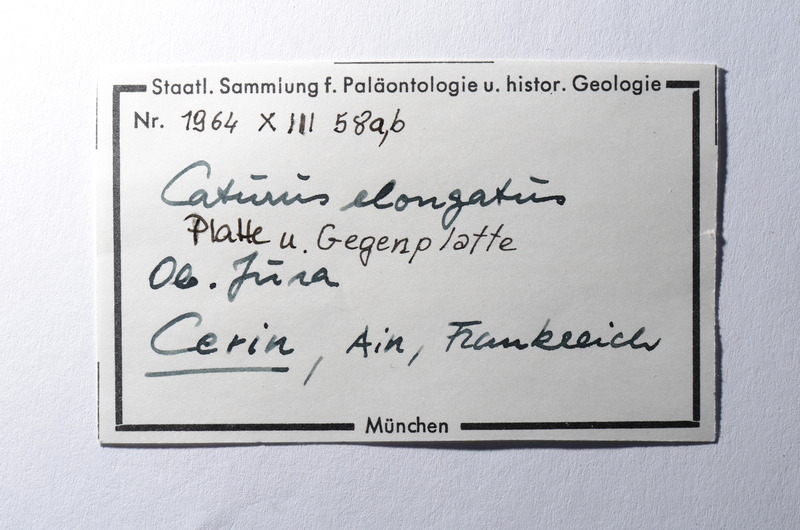 Staatl. Sammlung f. Paläontologie u. histor. Geologie
Nr. 1964 X III 58a,b
Caturus elongatus
Platte u. Gegenplatte
Ob. Jura
Cerin, Ain, Frankreich
München